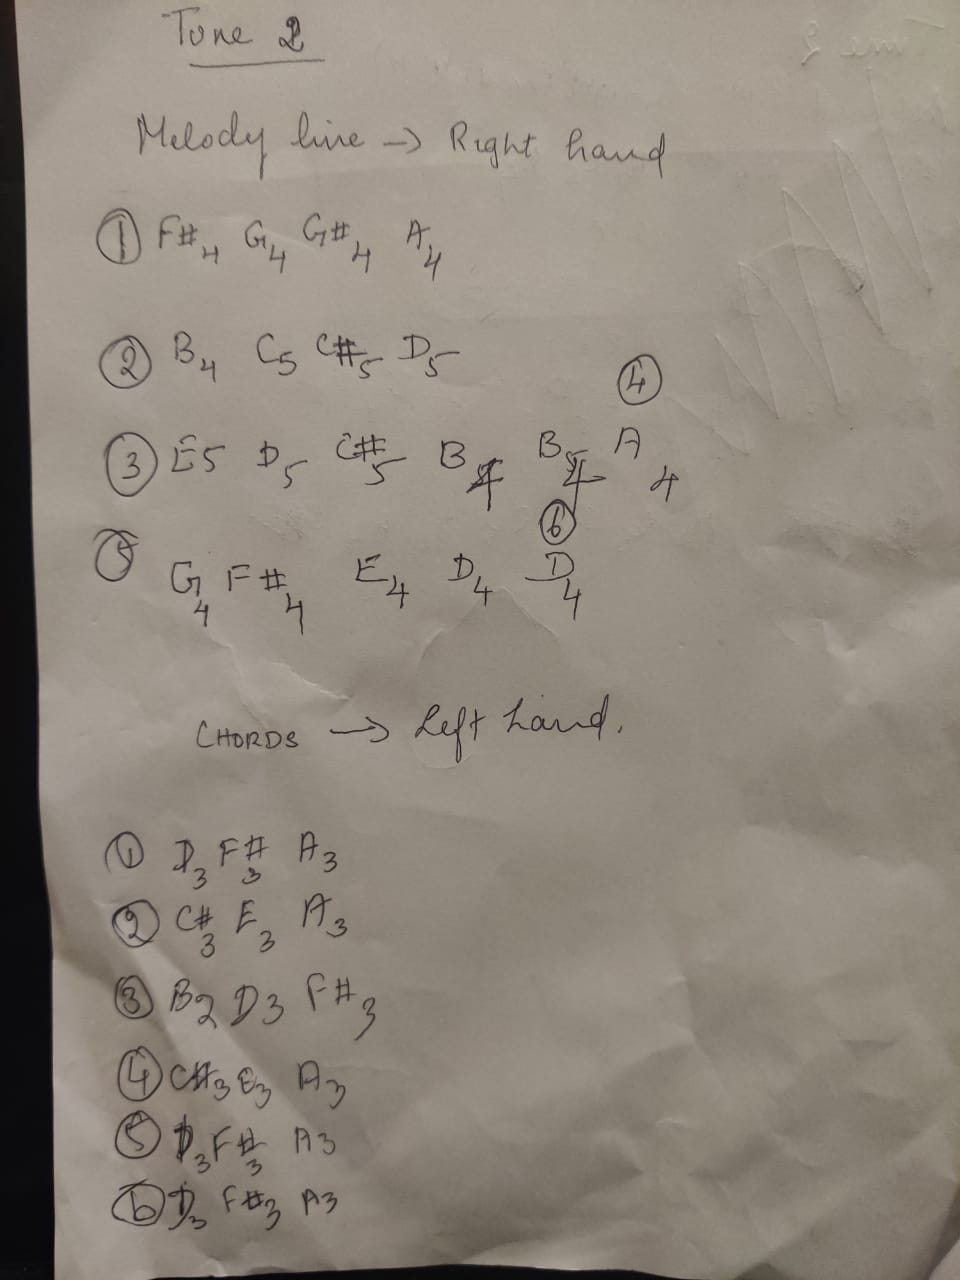 Tune 2
Melody line → Right hand
① F#4 G4 G#4 A4
② B4 C5 C#5 D5
④
③ E5 D5 C#5 B4 B4 A4
⑥
⑤ G4 F#4 E4 D4 D4
CHORDS → Left hand.
① D3 F#3 A3
② C#3 E3 A3
③ B2 D3 F#3
④ C#3 E3 A3
⑤ D3 F#3 A3
⑥ D3 F#3 A3